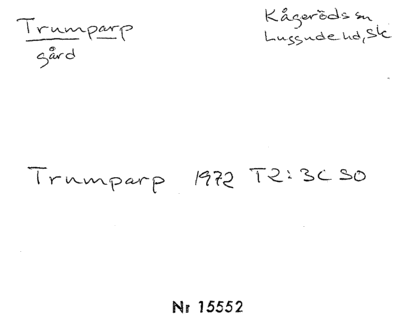 Trumparp
gård
Kågeröds sn
Luggude hd, Sk
Trumparp 1972 T2: 3C SO
Nr 15552